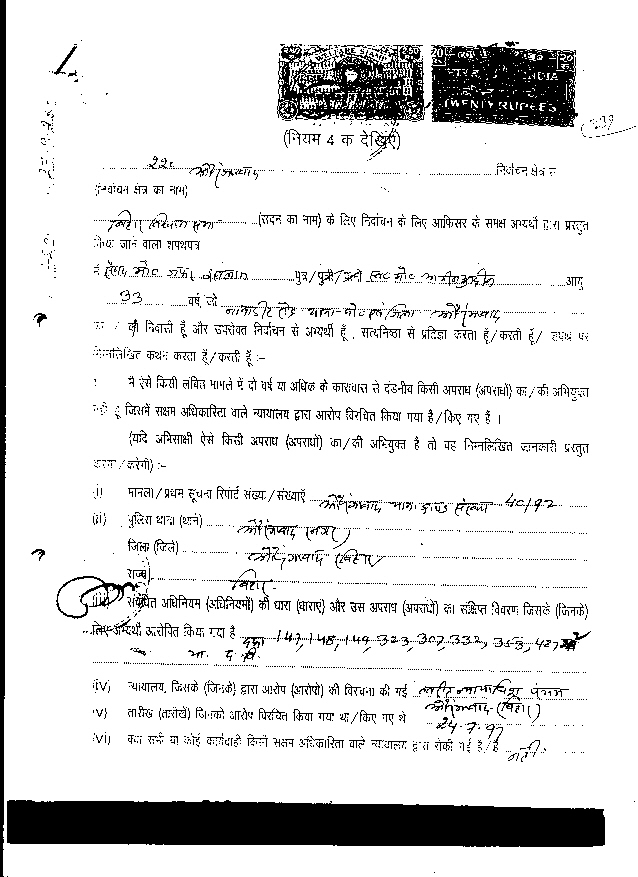 INDIA
TWENTY RUPEES
(नियम 4 क देखिए)
220 औरंगाबाद निर्वाचन क्षेत्र से
(निर्वाचन क्षेत्र का नाम)
बिहार विधान सभा (सदन का नाम) के लिए निर्वाचन के लिए आफिसर के समक्ष अभ्यर्थी द्वारा प्रस्तुत
किया जाने वाला शपथपत्र
मैं पुत्र/पुत्री/पत्नी आयु
33 वर्ष, जो औरंगाबाद
का / की निवासी हूँ और उपरोक्त निर्वाचन से अभ्यर्थी हूँ, सत्यनिष्ठा से प्रतिज्ञा करता हूँ/करती हूँ/ शपथ पर
निम्नलिखित कथन करता हूँ/करती हूँ :-
मैं ऐसे किसी लंबित मामले में दो वर्ष या अधिक के कारावास से दंडनीय किसी अपराध (अपराधों) का/की अभियुक्त
नहीं हूँ जिसमें सक्षम अधिकारिता वाले न्यायालय द्वारा आरोप विरचित किया गया है/किए गए हैं ।
(यदि अभिसाक्षी ऐसे किसी अपराध (अपराधों) का/की अभियुक्त है तो वह निम्नलिखित जानकारी प्रस्तुत
करेगा/करेगी) :-
(i) मामला/प्रथम सूचना रिपोर्ट संख्या/संख्याएँ औरंगाबाद थाना काण्ड संख्या 40/92
(ii) पुलिस थाना (थाने) औरंगाबाद (नगर)
जिला (जिले) औरंगाबाद (बिहार)
राज्य बिहार
(iii) संबंधित अधिनियम (अधिनियमों) की धारा (धाराएं) और उस अपराध (अपराधों) का संक्षिप्त विवरण जिसके (जिनके)
लिए अभ्यर्थी आरोपित किया गया है दफा 147, 148, 149, 323, 307, 332, 353, 427
भा. द. वि.
(iv) न्यायालय, जिसके (जिनके) द्वारा आरोप (आरोपों) की विरचना की गई न्यायाधीश पंचम
औरंगाबाद (बिहार)
(v) तारीख (तारीखें) जिनको आरोप विरचित किया गया था/किए गए थे 24-7-97
(vi) क्या सभी या कोई कार्यवाही किसी सक्षम अधिकारिता वाले न्यायालय द्वारा रोकी गई है/हैं नहीं